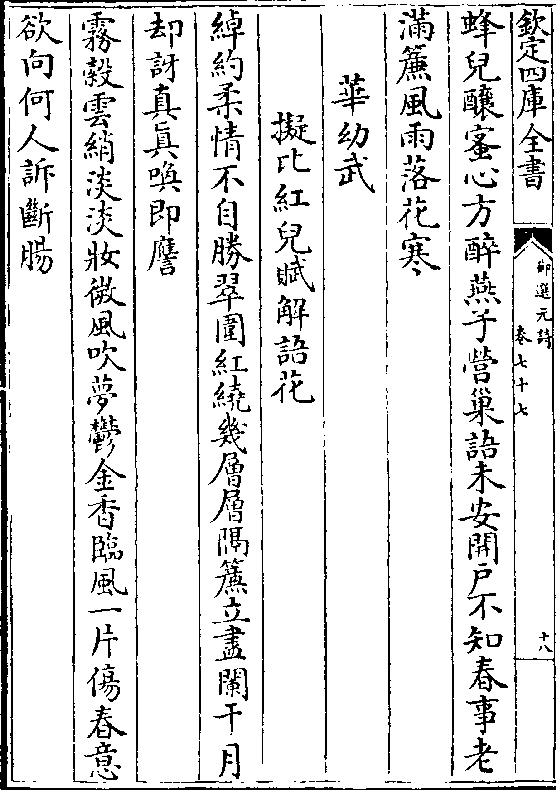 欽定四庫全書
御選元詩
卷七十七
十八
蜂兒釀蜜心方醉燕子營巢語未安開戶不知春事老
滿簾風雨落花寒
華幼武
擬比紅兒賦解語花
綽約柔情不自勝翠圍紅繞幾層層隔簾立盡闌干月
却訝真真喚即譍
霧縠雲綃淡淡妝微風吹夢鬱金香臨風一片傷春意
欲向何人訴斷腸